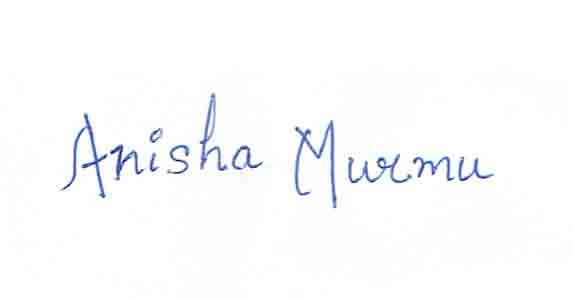 Anisha Murmu